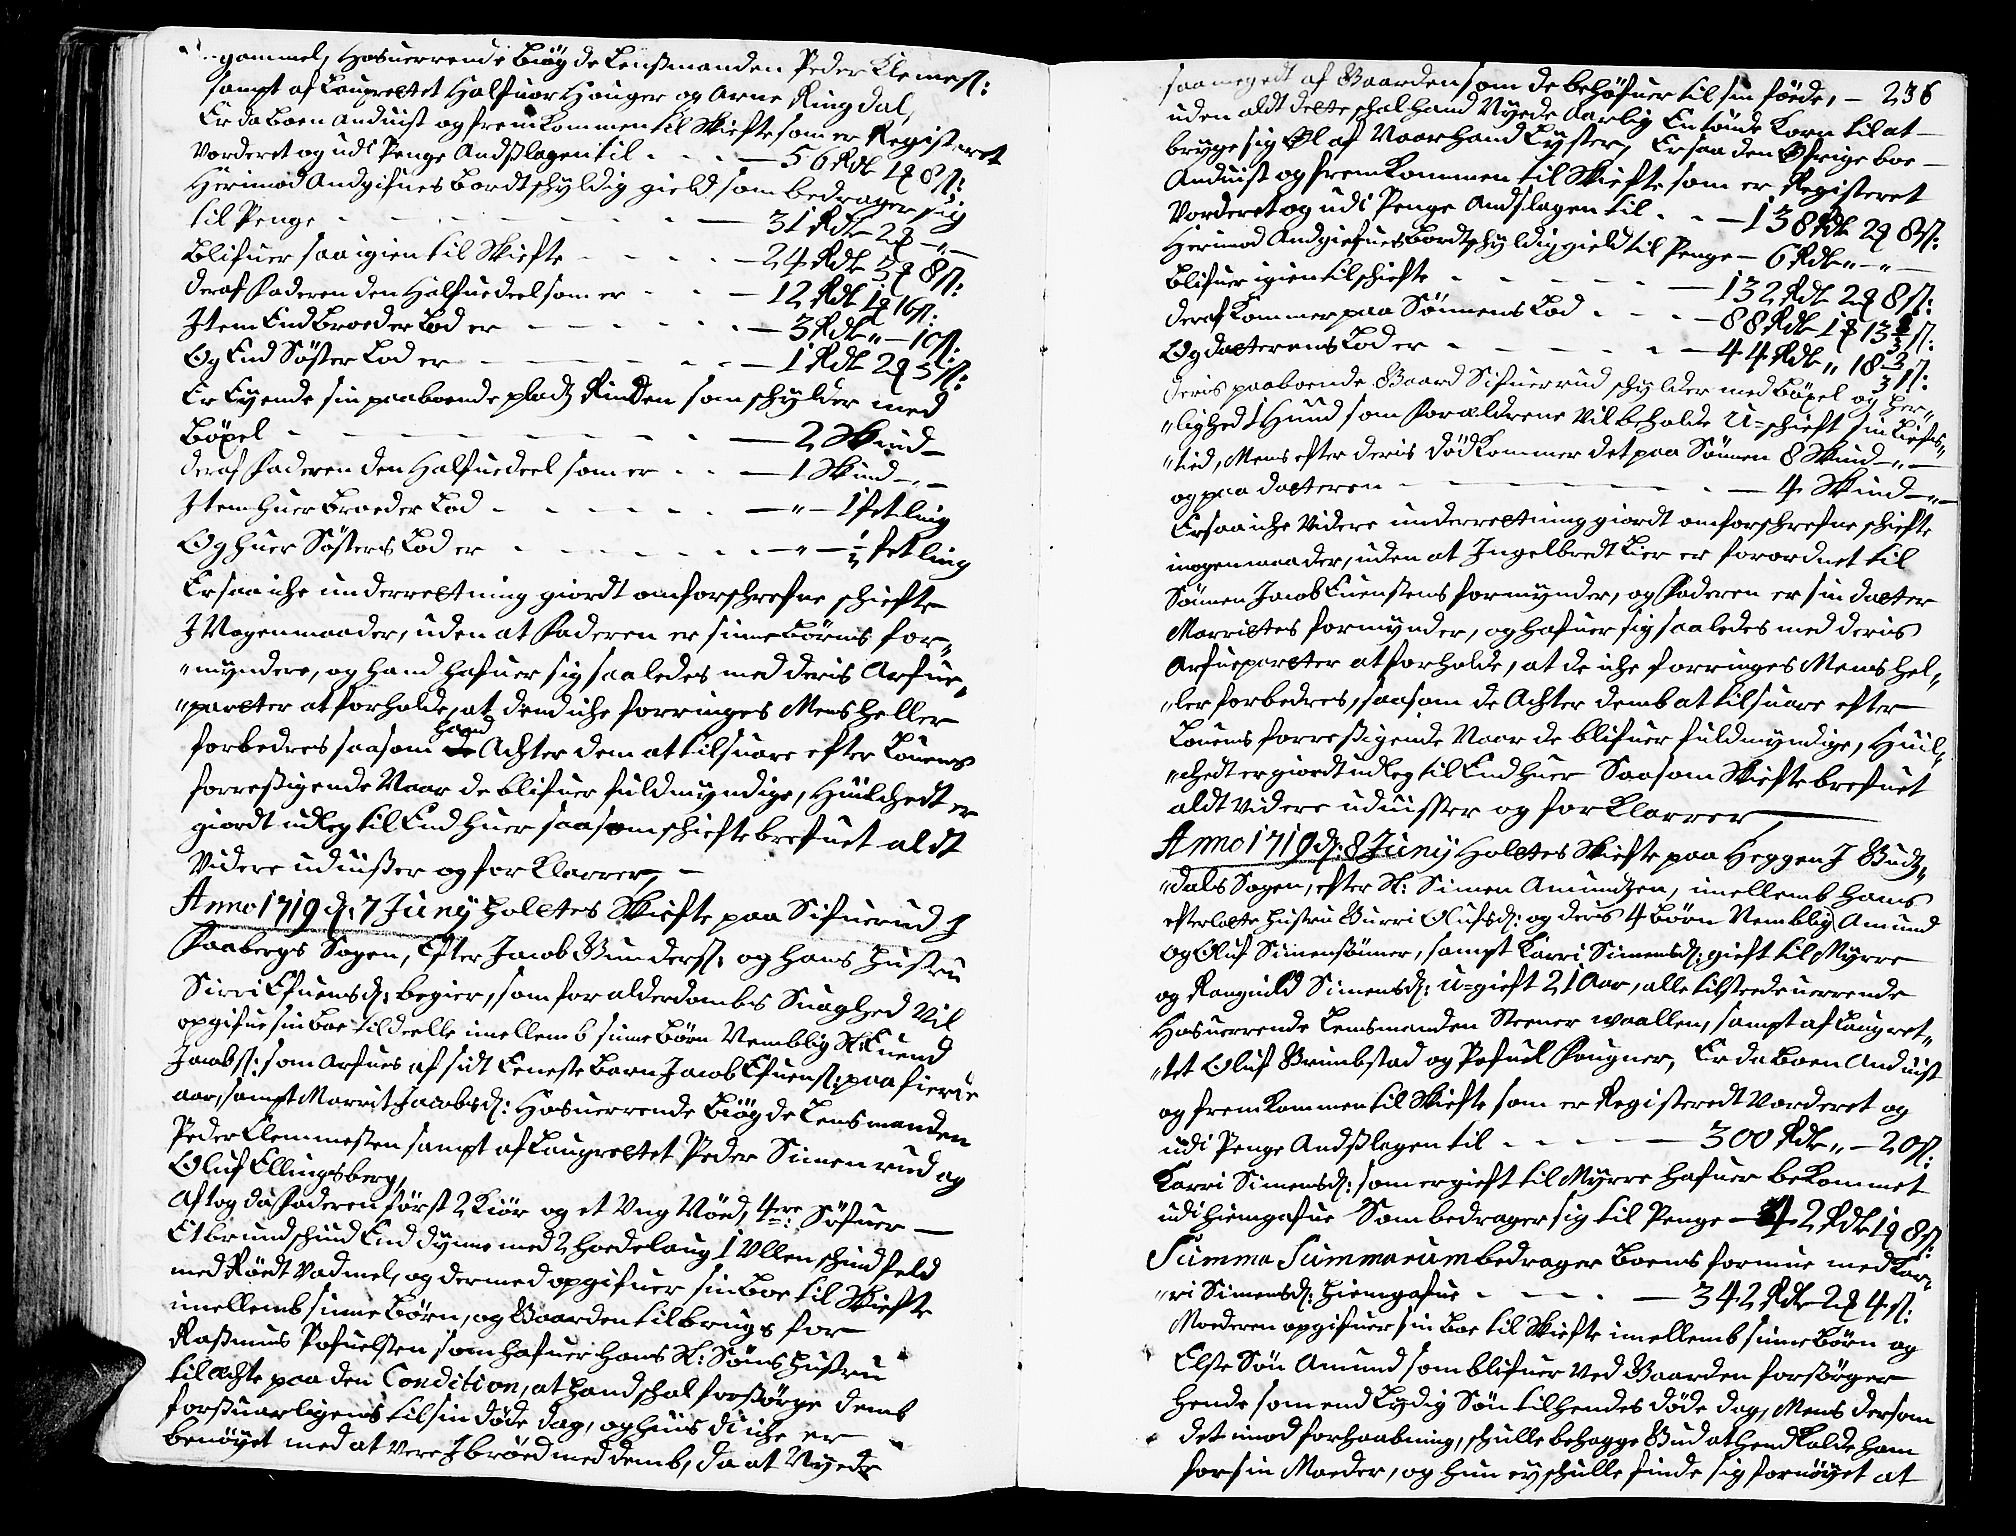 gammel, hosuerrende Bøygde Lensmanden Peder Clemess:
sampt af Laugrettet Halfuor Houger og Arne Ringdal,
Er da boen anduist og fremkommen til Skifte som er Registeret
Vorderet og udi Penge Andslagen til - - - 56 Rdl 1 ₰ 8 s:
Herimod Andgifues bordtskyldig gield som bedrager sig
til Penge - - - - - 31 Rdl 2 ₰ - „ -
Blifuer saa igien til Skifte - - - - 24 Rdl 3 ₰ 8 s:
deraf Faderen den Halfuedeel som er - - - 12 Rdl 1 ₰ 16 s:
Item End Broeder Lod er - - - - - 3 Rdl „ - 10 s:
Og End Söster Lod er - - - - - 1 Rdl 2 ₰ 5 s:
Er Eyende sin paaboende pladtz Rinden som schylder med
Böxel - - - - - - - 2 Skind -
deraf Faderen den Halfuedeel som er - - - 1 Skind - „ -
Item huer Broeder Lod - - - - - „ - 1 fetling
Og huer Sösters Lod er - - - - - „ - ½ fetling
Er saa iche underrettning giordt om forschrefne schiefte
I Nogenmaader, uden at Faderen er sinne Börns for„
„myndere, og hand hafuer sig saaledes med deris Arfue„
„parter at forholde, at dem iche forringes Mens heller
forbedres saasom hand Achter dem at tilsuare efter Louens
forresigende Naar de blifuer fuldmyndige, Huilchedt er
giordt udleg til End huer saasom schieftebrefuet aldt
Videre uduisser og forklarrer, -
Anno 1719 d: 7 Junij Holtes Skiefte paa Sifuerud I
Faabergs Sogen, Efter Jacob Gunderss: og hans hustru
Sirri Efuensd: begier, som for alderdombs Suaghed Vil
opgifue sin boe til deelle imellemb sinne börn Nemblig Sl: Euend
Jacobss: som Arfues af sidt Eeneste barn Jacob Efuenss: paa fierde
aar, sampt Marrit Jacobsd: Hosuerrende Böygde Lensmanden
Peder Clemmessen sampt af Laugrettet Peder Simenrud og
Oluf Ellingsberg,
Aftog da Faderen först 2 Kiör og et Ung Nöed, 4ere: Söfuer -
Et brundschind End dynne med 2 hoedelaug 1 Ullen schindfeld
med Röedt Vadmel, og dermed opgifuer sin boe til Skifte
imellemb sinne Börn, og Gaarden til brugs for
Rasmus Pofuelsen som hafuer hans Sl: Söns hustru
til Achte paa den Condition, at hand schal forsörge demb
forsuarligens til sin döde dag, og huis di iche er
benöyet med at Vere I bröed med demb, da at Nyede
saa megedt af Gaarden som de behöfuer til sin föede, - 236
uden aldt dette schal hand Nyede Aarlig En tönde Korn til at -
bryge sig Øl af Naar hand Lyster, Er saa den Øfrige boe -
Anduist og fremkommen til Skiefte som er Registeret
Vorderet og udi Penge Andslagen til - - - 138 Rdl 2 ₰ 8 s:
Herimod Andgiefues bordtschyldig gield til Penge - 6 Rdl „ - „ -
Blifuer igien til schifte - - - - - 132 Rdl 2 ₰ 8 s:
deraf Kommer paa Sönnens Lod - - - 88 Rdl 1 ₰ 13 ⅓ s:
Og datterens Lod er - - - - - 44 Rdl „ 18 ⅔ s:
deris paaboende Gaard Sifuerrud schylder med böxel og her„
„lighed 1 Huud som Forældrene Vil beholde U=schieft sin Liefs„
„tied, Mens efter deris död Kommer det paa Sönnen 8 Skind - „ -
og paa datteren - - - - - - 4 Skind - „ -
Er saa iche Videre underrettning giordt om forschrefne schiefte
inogenmaader, uden at Ingelbredt Lier er forordnet til
Sönnen Jacob Euensens formynder, og Faderen er sin datter
Marrittes formynder, og hafuer sig saaledes med deris
Arfueparter at forholde, at de iche forringes Mens hel„
„ler forbedres, saasom de Achter demb at tilsuare efter
Louens forresigende Naar de blifuer fuldmyndige, Huil„
„chedt er giordt udleg til End huer Saasom Skieftebrefuet
aldt Videre uduisser og forklarrer,
Anno 1719 d: 8 Junij Holttes Skiefte paa Heggen I Gudz„
„dals Sogen, efter Sl: Simen Amundtzen, imellemb hans
efterlatte hustru Gurri Olufsd: og deris 4 börn Nemblig Amund
og Oluf Simensönner, sampt Karri Simensd: gieft til Myrre
og Rangnild Simensd: U=gieft 21 Aar, alle tilstedeuerrende
Hosuerrende Lensmanden Steener Waallen, sampt af Laugret„
„tet Oluf Brumbstad og Pofuel Fougner, Er da boen Anduist
og fremkommen til Skiefte som er Registeredt Vorderet og
udi Penge Andslagen til - - - - - 300 Rdl „ - 20 s:
Karri Simensd: som er gieft til Myrre hafuer bekommet
udi hiemgafue Som bedrager sig til Penge - 42 Rdl 1 ₰ 8 s:
Summa Summarum bedrager boens formue med Kar„
„ri Simensd: hiemgafue - - - - 342 Rdl 2 ₰ 4 s:
Moederen opgifuer sin boe til Skiefte imellemb sinne börn og
Elste Sön Amund som blifuer Ved Gaarden forsörger
hende som end Lydig Sön til hendes döde dag, Mens dersom
det imod forhaabning, schulle behagge Gud at henkalde ham
for sin Moeder, og hun ey schulle finde sig fornöyet at